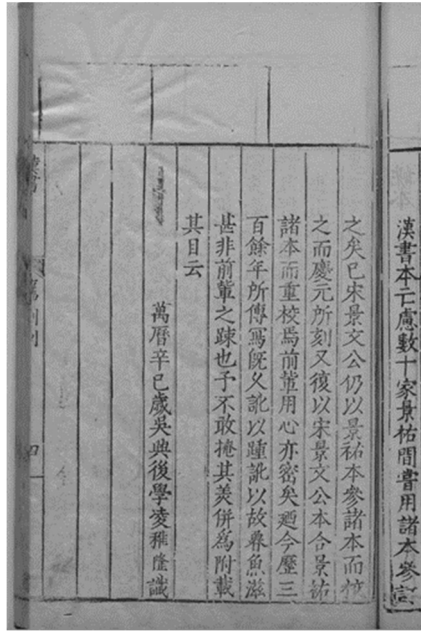 漢書本亡慮數十家景祐間嘗用諸本參訂
之矣已宋景文公仍以景祐本參諸本而校
之而慶元所刻又復以宋景文公本合景祐
諸本而重校焉前輩用心亦密矣廼今歷三
百餘年所傳寫旣久訛以踵訛以故魯魚滋
甚非前輩之踈也予不敢掩其美併爲附載
其目云
萬曆辛巳歲吳興後學凌稚隆識